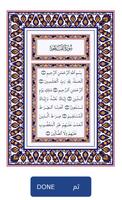 سُورَةُ الفَاتِحَةِ
بِسْمِ اللهِ الرَّحْمٰنِ الرَّحِيْمِ
الْحَمْدُ لِلّٰهِ رَبِّ الْعٰلَمِيْنَ
الرَّحْمٰنِ الرَّحِيْمِ مٰلِكِ يَوْمِ الدِّيْنِ
اِيَّاكَ نَعْبُدُ وَاِيَّاكَ نَسْتَعِيْنُ اِهْدِنَا
الصِّرَاطَ الْمُسْتَقِيْمَ صِرَاطَ الَّذِيْنَ
اَنْعَمْتَ عَلَيْهِمْ غَيْرِ الْمَغْضُوْبِ
عَلَيْهِمْ وَلَا الضَّآلِّيْنَ
DONE تم